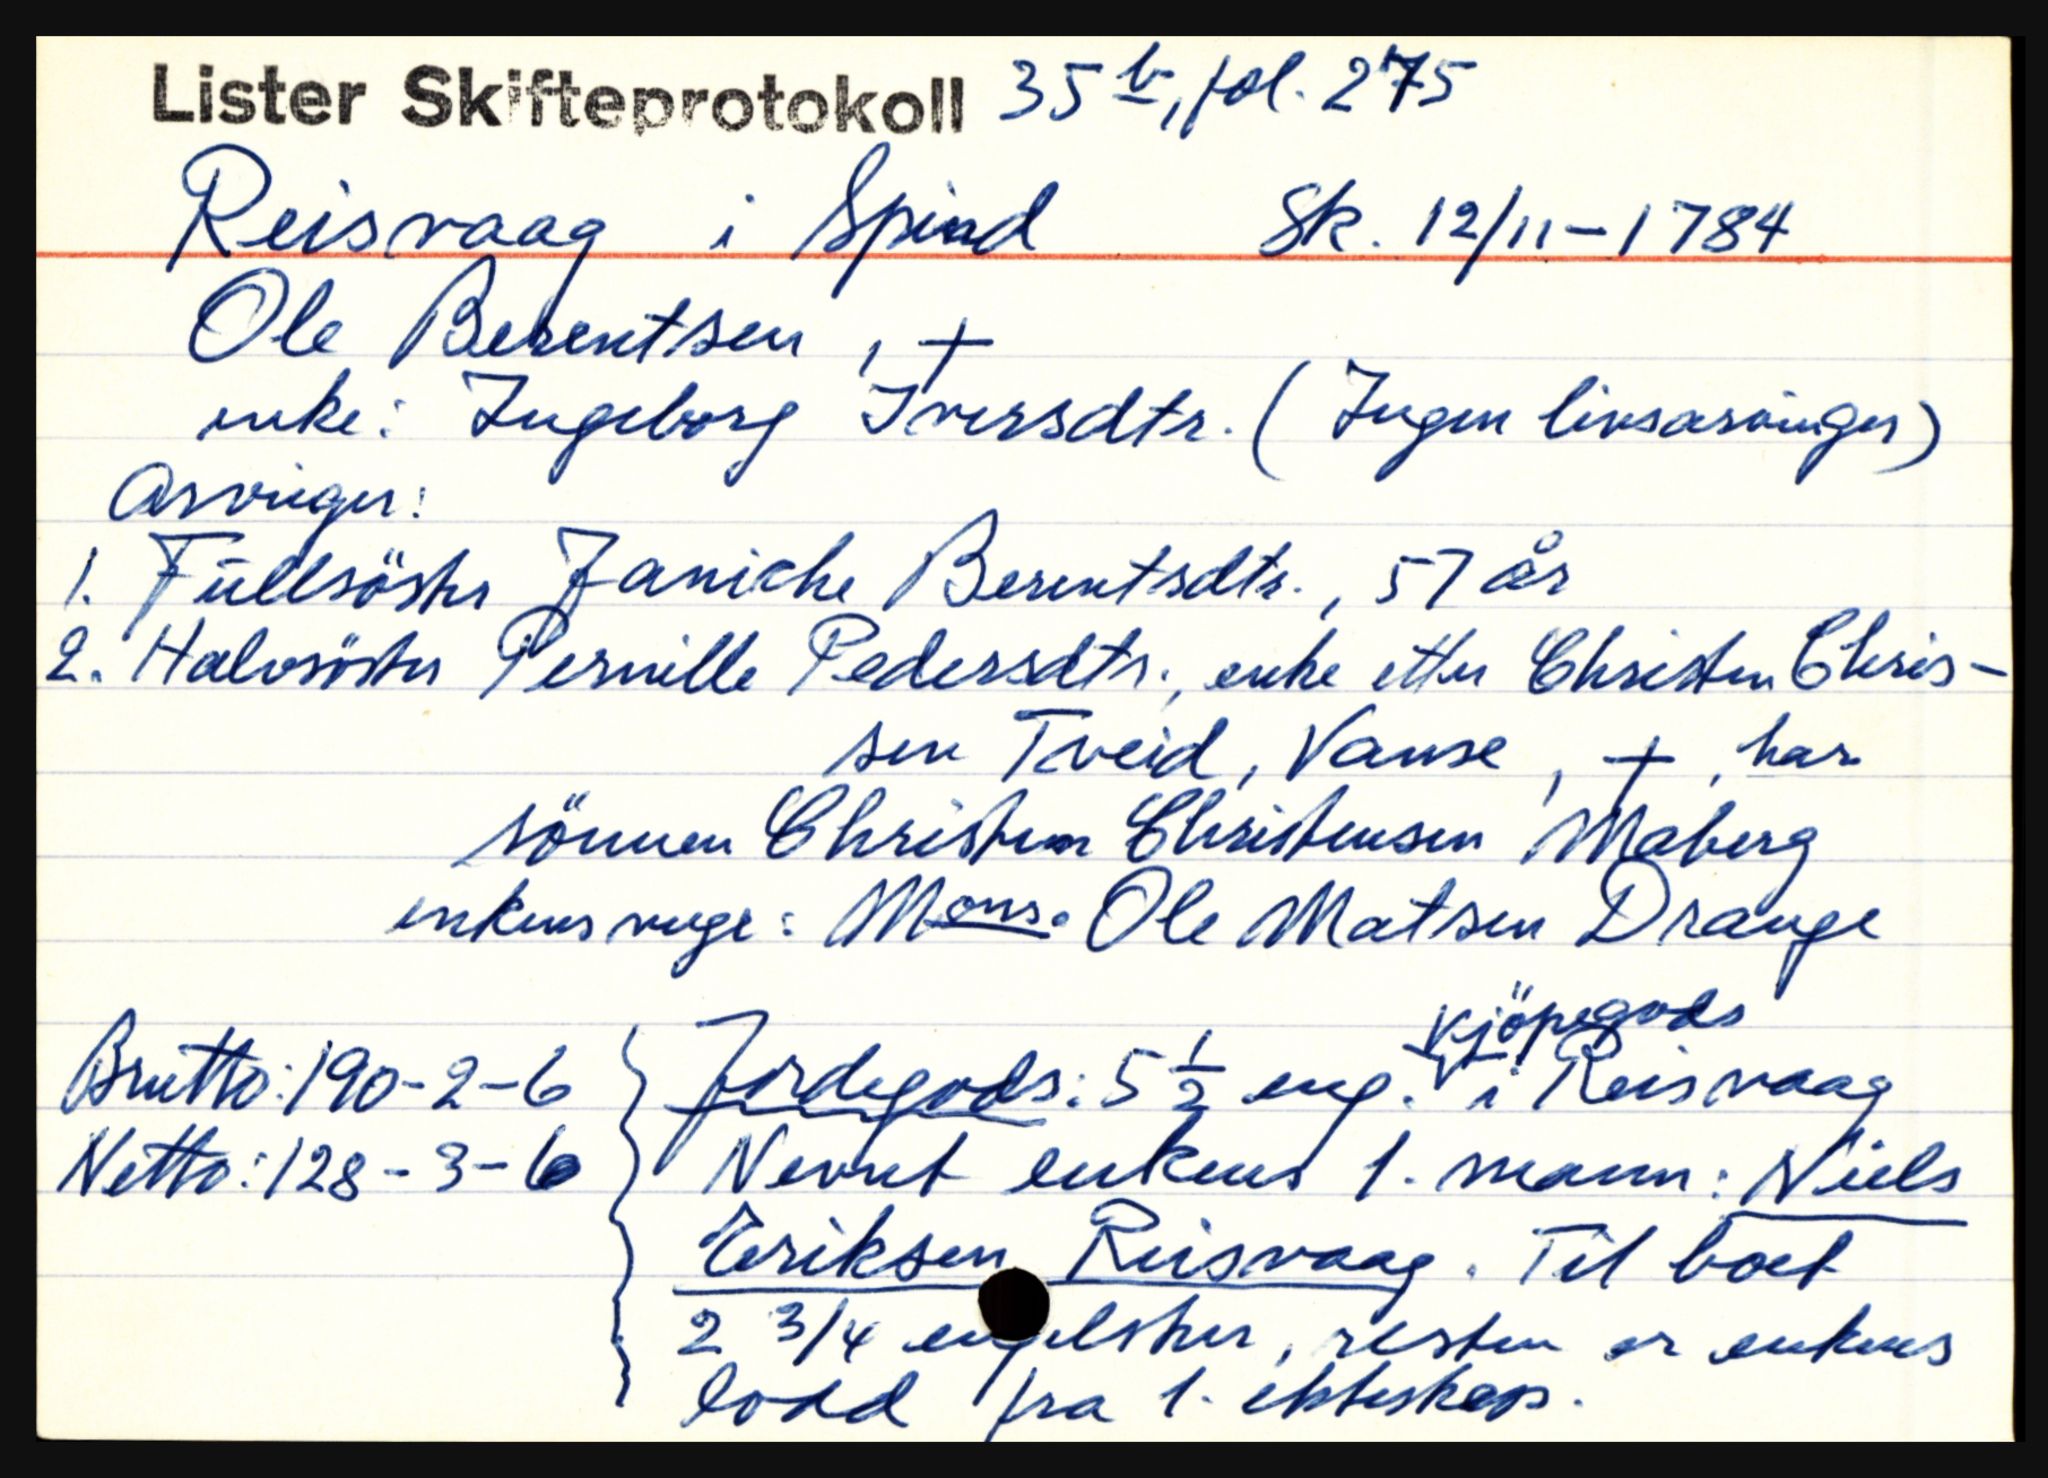 Lister Skifteprotokoll 35 b, fol. 275
Reisvaag i Spind Sk. 12/11-1784
Ole Berentsen, +
enke: Ingeborg Iversdtr. (Ingen livsarvinger)
Arvinger:
1. Füllsöster Janiche Berentsdtr., 57 år
2. Halvsöster Pernille Pedersdtr., enke etter Christen Chris-
sen Tveid, Vanse, +, har
sönnen Christen Christensen Maberg
enkens verge: Mons. Ole Matsen Drange
kjöpegods
Brutto: 190-2-6 Jordegods: 5 1/2 eng. i Reisvaag
Netto: 128-3-6 Nevnt enkens 1. mann: Niels
Eriksen Reisvaag. Til boet
2 3/4 engelsker, resten er enkens
lodd fra 1. ekteskap.